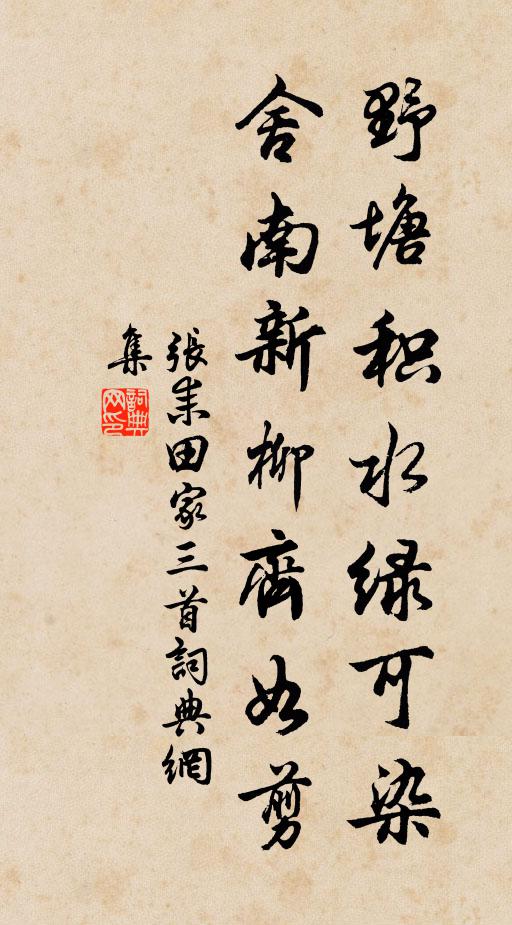 野塘积水绿可染
舍南新柳齊如剪
張耒田家三首詞典網
集
詞典
网印